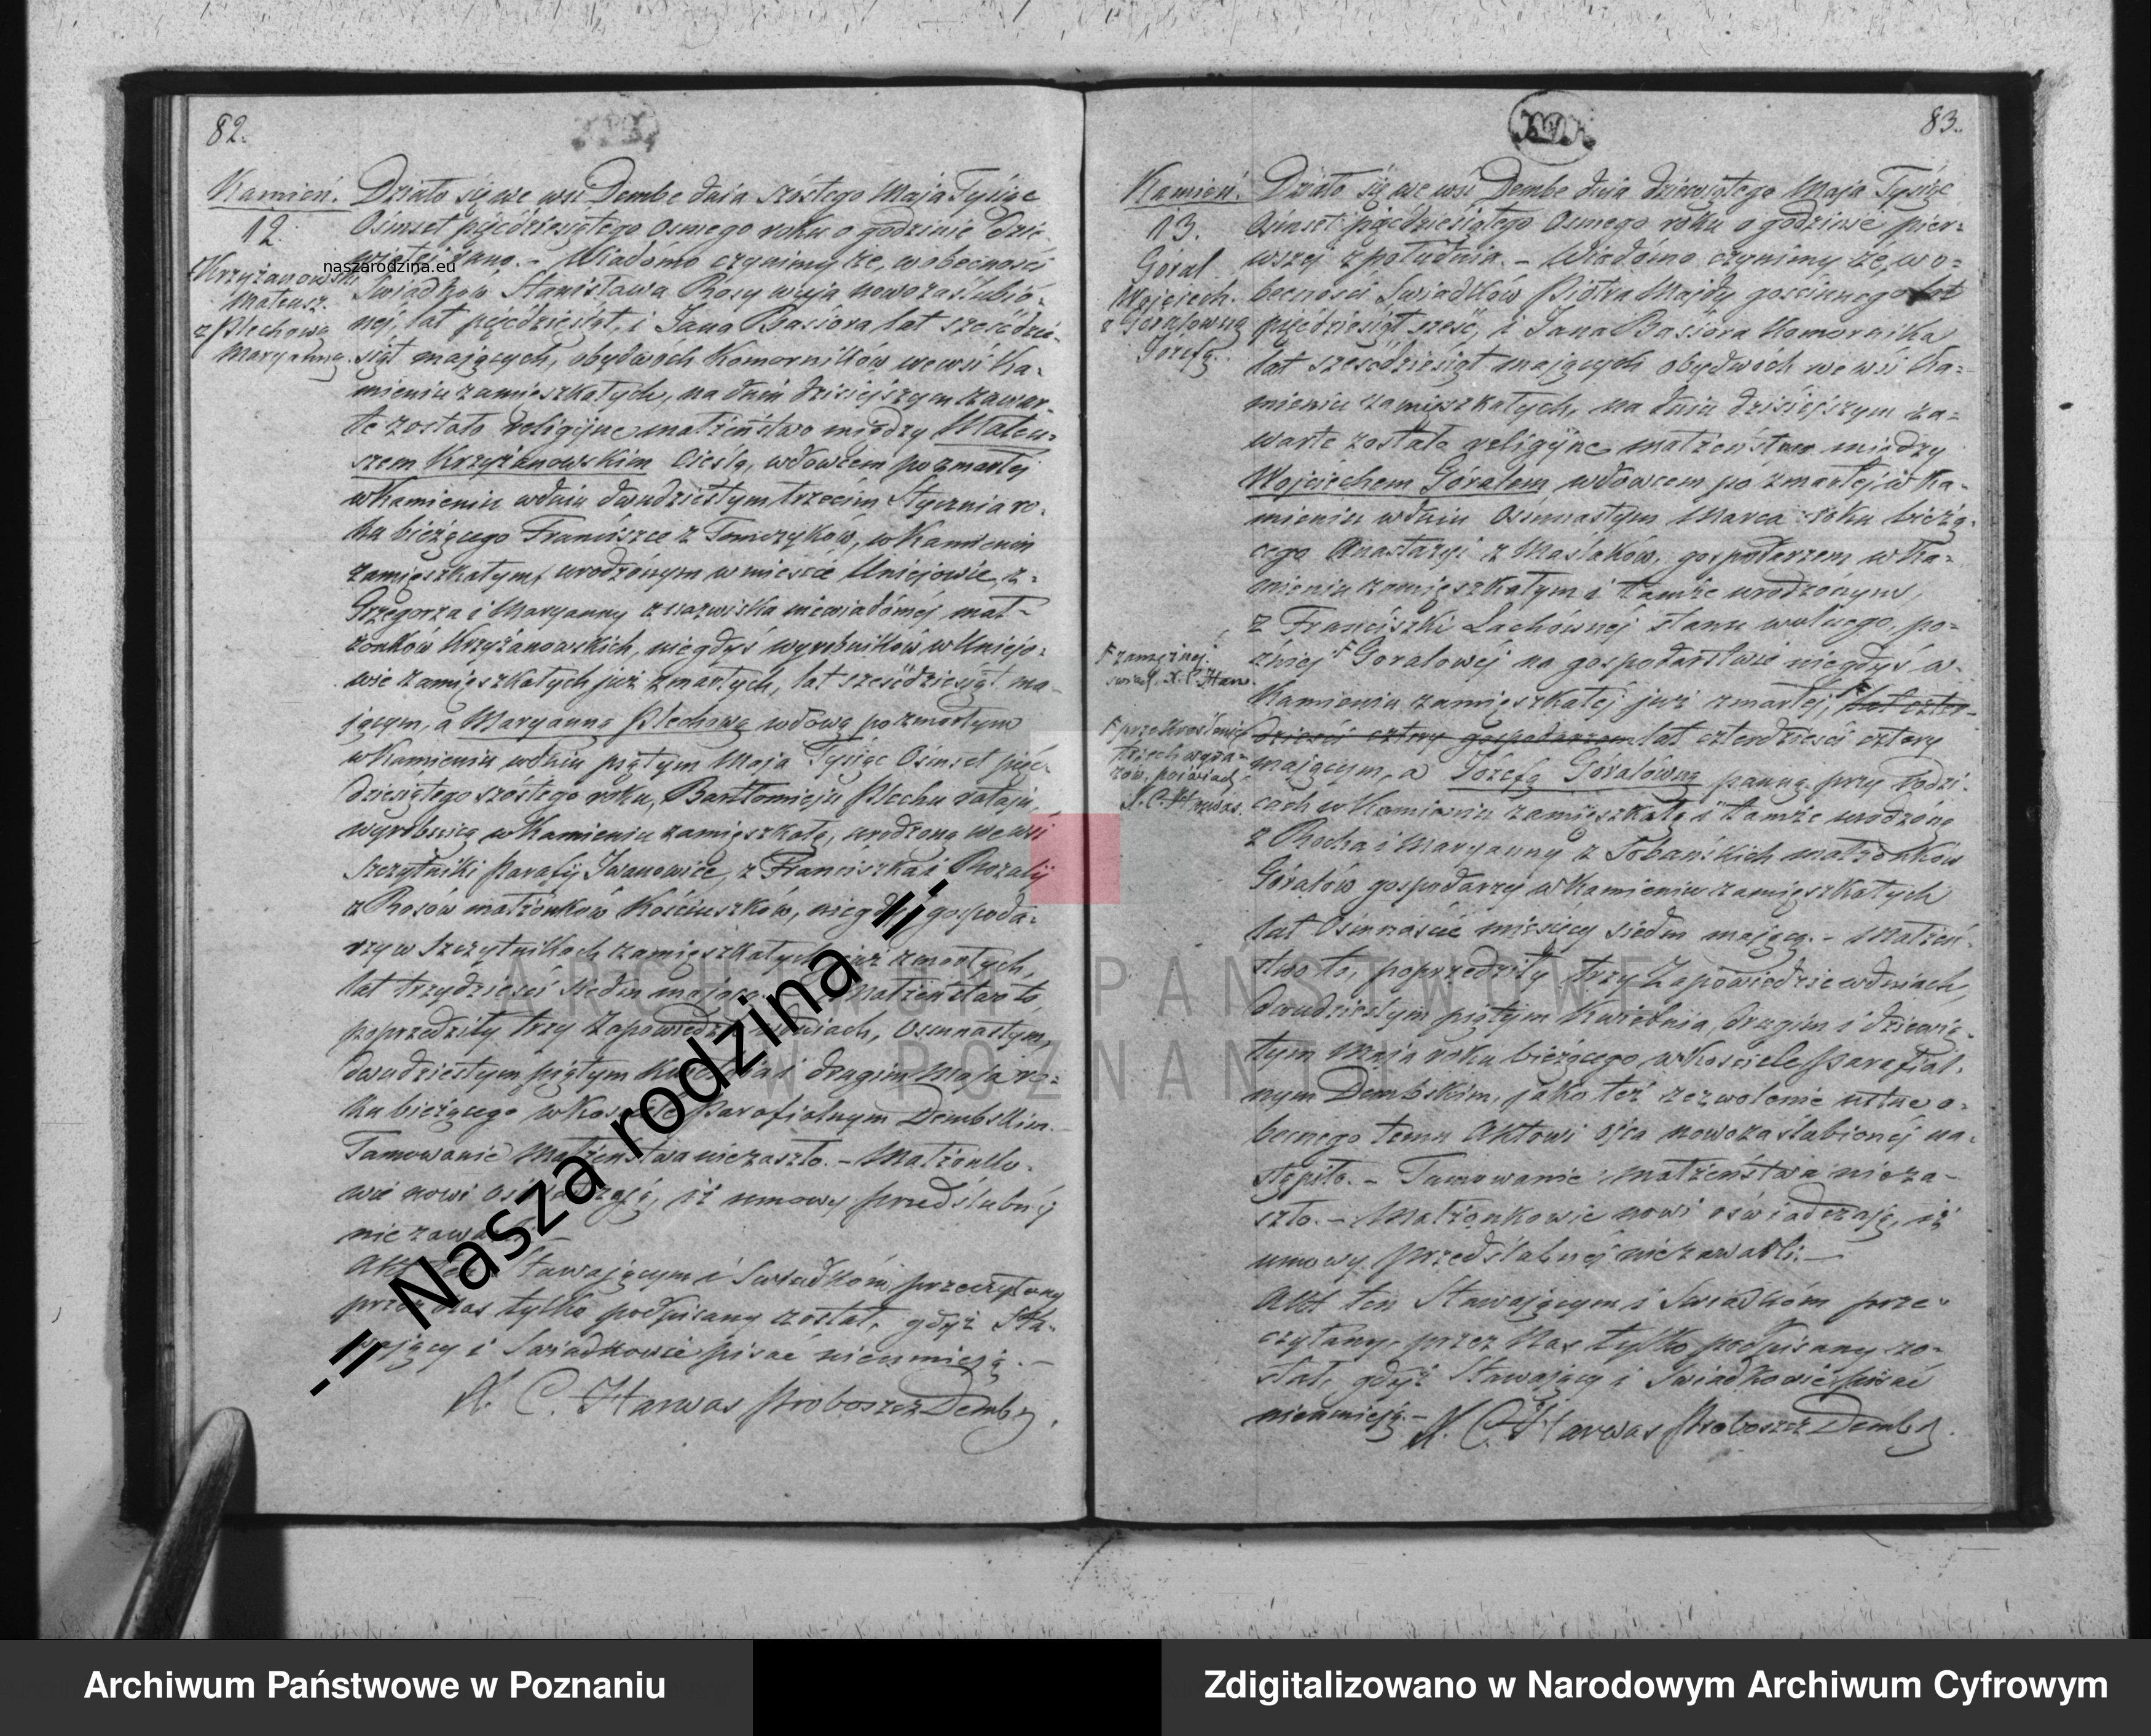 82.
Kamień.
12.
Krzyżanowski
Mateusz.
z Plechową
Maryanną.
Działo się we wsi Dembe dnia szóstego Maja Tysiąc
Ośmset pięćdziesiątego osmego roku o godzinie dzie-
wiątej rano. – Wiadomo czynimy że, w obecności
Swiadków Stanisława Rosy wuja nowozaślubio-
nej, lat pięćdziesiąt, i Jana Basiora lat sześćdzie-
siąt mających, obydwóch Komorników we wsi Ka-
mieniu zamieszkałych, na dniu dzisiejszym zawar-
te zostało religijne małżeństwo między Mateu-
szem Krzyżanowskim Cieślą, wdowcem po zmarłej
w Kamieniu w dniu dwudziestym trzecim Stycznia ro-
ku bieżącego Franciszce z Tomczyków, w Kamieniu
zamięszkałym, urodzonym w mieście Uniejowie z-
Grzegorza i Maryanny z nazwiska niewiadomej mał-
żonków Krzyżanowskich, niegdyś wyrobników w Uniejo-
wie zamięszkałych już zmarłych, lat sześćdziesiąt ma-
jącym, a Maryanną Plechową wdową po zmarłym
w Kamieniu w dniu piątym Maja Tysiąc Ośmset pięć-
dziesiątego szóstego roku, Bartłomieju Plechu rataju,
wyrobnicą w Kamieniu zamięszkałą, urodzoną we wsi
Szczytniki Parafij Iwanowice, z Franciszka i Rozalij
z Rosów małżonków Kościuszków, niegdyś gospoda-
rzy w Szczytnikach zamięszkałych już zmarłych,
lat trzydzieści siedm mającą. – Małżeństwo to
poprzedziły trzy Zapowiedzi w dniach, osmnastym,
dwudziestym piątym Kwietnia i drugim Maja ro-
ku bieżącego w Kościele Parafialnym Dembskim. –
Tamowanie Małżeństwa niezaszło. – Małżonko-
wie nowi oświadczają, iż umowy przedślubnej
niezawarli. –
Akt ten Stawającym i Swiadkóm przeczytany
przez Nas tylko podpisany został, gdyż Sta-
wający i Swiadkowie pisać nieumieją. –
X. C. Harwas Proboszcz Demby.
83.
Kamień.
13.
Góral
Wojciech.
z Góralówną
Józefą.
Działo się we wsi Dembe dnia dziewiątego Maja Tysiąc
Ośmset pięćdziesiątego osmego roku o godzinie pier-
wszej z południa. – Wiadomo czynimy że, w o-
becności Swiadków Piotra Majdy gościnnego lat
pięćdziesiąt sześć, i Jana Basiora Komornika
lat sześćdziesiąt mających obydwóch we wsi Ka-
mieniu zamięszkałych, na dniu dzisiejszym za-
warte zostało religijne małżeństwo między
Wojciechem Góralem, wdowcem po zmarłej w Ka-
mieniu w dniu osmnastym Marca roku bieżą-
cego Anastazyi z Maślaków, gospodarzem w Ka-
mieniu zamięszkałym i tamże urodzonym,
z Franciszki Lachównej stanu wolnego, po-
źniej Goralowej na gospodarstwie niegdyś w-
zamężnej.
Kamieniu zamięszkałej już zmarłej, lat czter-
dzieści cztery gospodarzem lat czterdzieści cztery
przekreślenie
trzech wyra-
zów, poświad.
X. C. Harwas.
mającym, a Józefą Góralówną panną przy rodzi-
cach w Kamieniu zamięszkałą i tamże urodzoną
z Rocha i Maryanny z Sobańskich małżonków
Górałów gospodarzy w Kamieniu zamięszkałych
lat Osmnaście miesięcy siedm mającą. – Małżeń-
stwo to, poprzedziły trzy Zapowiedzie w dniach,
dwudziestym piątym Kwietnia, drugim i dziewią-
tym Maja roku bieżącego w Kościele Parafial-
nym Dembskim, jako też zezwolenie ustne o-
becnego temu Aktowi ojca nowozaślubionej na-
stąpiło. – Tamowanie małżeństwa nieza-
szło. – Małżonkowie nowi oświadczają, iż
umowy przedślubnej niezawarli. –
Akt ten Stawającym i Swiadkóm prze-
czytany, przez Nas tylko podpisany zo-
stał, gdyż Stawający i Swiadkowie pisać
nieumieją. – X. C. Harwas Proboszcz Demby.
naszarodzina.eu
-= Nasza rodzina =-
ARCHIWUM PAŃSTWOWE
W POZNANIU
Archiwum Państwowe w Poznaniu
Zdigitalizowano w Narodowym Archiwum Cyfrowym